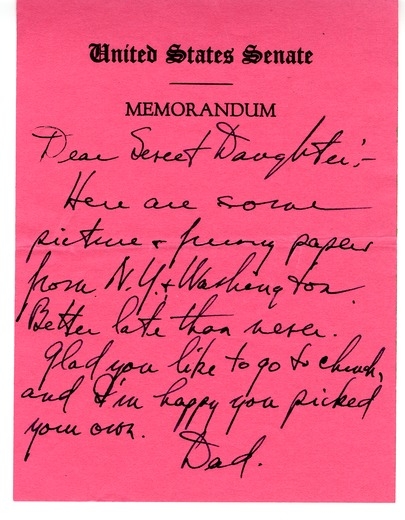 United States Senate
MEMORANDUM
Dear Sweet Daughter:-
Here are some
picture & funny paper
from N.Y. & Washington
Better late than never.
Glad you like to go to church,
and I'm happy you picked
your own.
Dad.